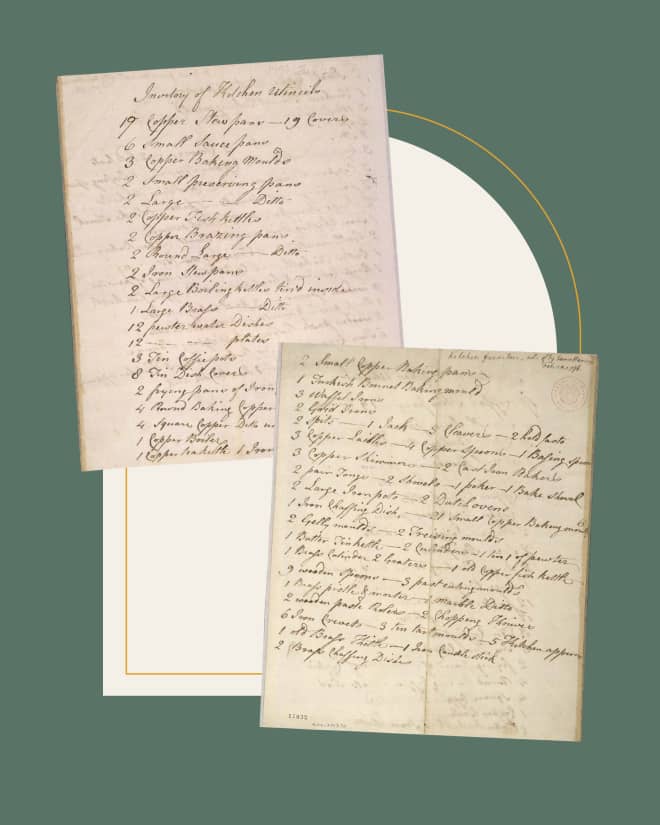 Inventory of Kitchen Utincels
19 Copper Stew pans — 19 Covers
6 Small Sauce pans
3 Copper Baking Moulds
2 Small preserving pans
2 Large — Ditto
2 Copper Fish kettles
2 Copper Brazing pans
2 Round Large — Ditto
2 Iron Stew pans
2 Large Boiling kettles tin'd inside
1 Large Brass — Ditto
12 pewter water Dishes
12 — — plates
3 Tin Coffie pots
8 Tin Dish Covers
2 frying pans of Iron
4 Round Baking Copper
4 Square Copper Ditto
1 Copper Boiler
1 Copper teakettle 1 Iron
kitchen furniture
2 Small Copper Baking pans
1 Turkish Bonnet Baking mould
3 Waffel Irons
2 Grid Irons
2 Spits — 1 Jack — 3 Cleavers — 2 hold fasts
3 Copper Ladles — 4 Copper spoons — 1 Basting spoon
3 Copper Skimmers — 2 Cast Iron Bakers
2 pair Tongs — 2 Shovels — 1 poker — 1 Bake Shovel
2 Large Iron pots — 2 Dutch ovens
1 Iron Chaffing Dish — 21 Small Copper Baking moulds
2 Gelly moulds — 2 Freising moulds
1 Butter Tinkettle — 2 — 1 tin 1 of pewter
1 Brass 2 Graters — 1 old Copper fish kettle
9 wooden spoons — 3 past cuting moulds
1 Brass pistle & morter — 1 marble Ditto
2 wooden paste Rolers — 2 Chopping Knives
6 Iron Crevets — 3 tin tart moulds — 5 Kitchen
1 old Brass — 1 Iron Candle stick
2 Brass Chaffing Dishes
11835